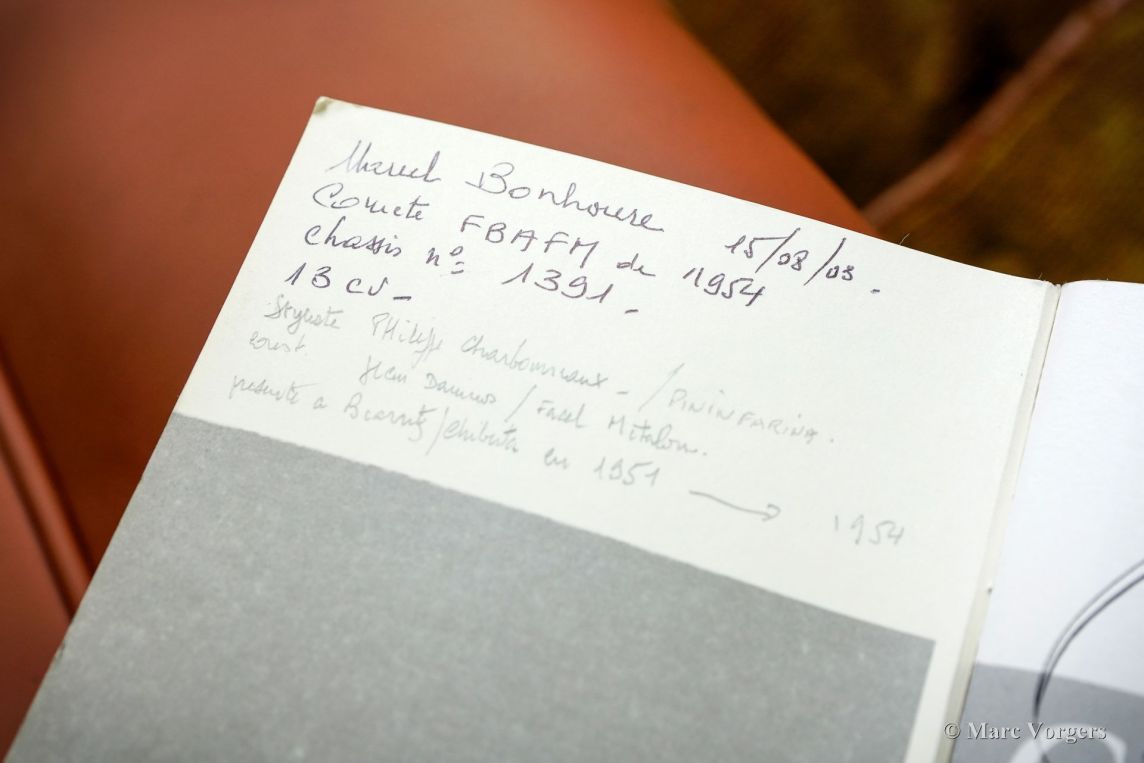 Marcel Bonhoure 15/08/03.
Comete FBAFM de 1954
chassis nº 1391.
13 cv_
Styliste PHilippe Charbonneaux_/PININFARINA.
const. Jean Daninos / Facel Métalon.
présenté a Biarritz/ en 1951 → 1954
© Marc Vorgers